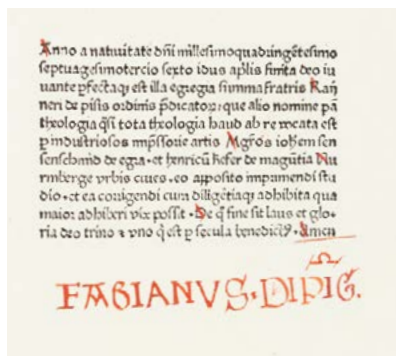 Anno a natiuitate dñi millesimoquadringētesimo
septuagesimotercio sexto idus aplis finita deo iu
uante pfectaq; est illa egregia summa fratris Ray
neri de pisis ordinis pdicator; que alio nomine pā
theologia qsi tota theologia haud ab re vocata est
p industriosos impssorie artis Mgros iohem sen
senschmid de egra · et henricū kefer de magūtia Nu
rmberge vrbis ciues · eo apposito impimendi stu
dio · et ea corrigendi cum diligētiaq; adhibita qua
maior adhiberi vix possit · De q̄ fine sit laus et glo
ria deo trino et vno q̄ est p secula benedictꝰ · Amen
FABIANVS · DIPIG.